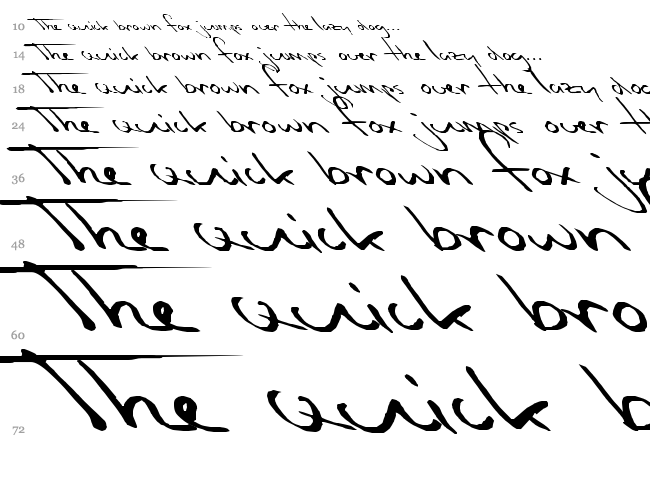 10 The quick brown fox jumps over the lazy dog...
14 The quick brown fox jumps over the lazy dog...
18 The quick brown fox jumps over the lazy dog
24 The quick brown fox jumps over th
36 The quick brown fox ju
48 The quick brown
60 The quick bro
72 The quick b